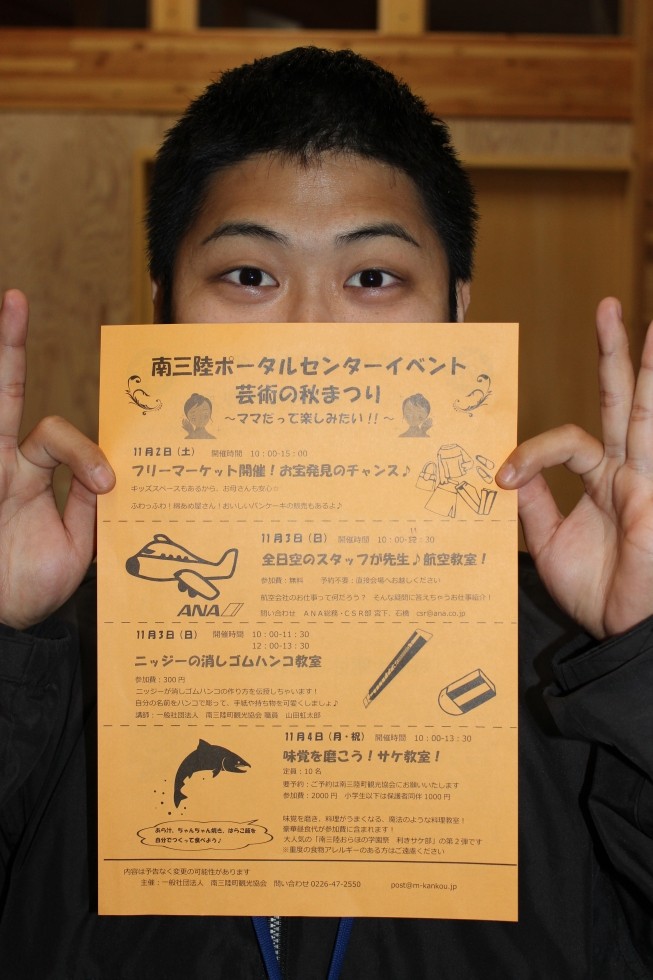 南三陸ポータルセンターイベント
芸術の秋まつり
～ママだって楽しみたい！！～
11月2日（土） 開催時間 10：00-15：00
フリーマーケット開催！お宝発見のチャンス♪
キッズスペースもあるから、お母さんも安心☆
ふわっふわ！綿あめ屋さん！おいしいパンケーキの販売もあるよ♪
11月3日（日） 開催時間 10：00- ：30
全日空のスタッフが先生♪航空教室！
参加費：無料 予約不要：直接会場へお越しください
航空会社のお仕事って何だろう？ そんな疑問に答えちゃうお仕事紹介！
問い合わせ ANA総務・CSR部 宮下、石橋 csr@ana.co.jp
ANA
11月3日（日） 開催時間 10：00-11：30
12：00-13：30
ニッジーの消しゴムハンコ教室
参加費：300円
ニッジーが消しゴムハンコの作り方を伝授しちゃいます！
自分の名前をハンコで彫って、手紙や持ち物を可愛くしましょ♪
講師：一般社団法人 南三陸町観光協会 職員 山田虹太郎
11月4日（月・祝） 開催時間 10：00-13：30
味覚を磨こう！サケ教室！
定員：10名
要予約：ご予約は南三陸町観光協会にお願いいたします
参加費：2000円 小学生以下は保護者同伴 1000円
味覚を磨き、料理がうまくなる、魔法のような料理教室！
豪華昼食代が参加費に含まれます！
大人気の「南三陸おらほの学園祭 利きサケ部」の第2弾です
※重度の食物アレルギーのある方はご遠慮ください
あら汁、ちゃんちゃん焼き、はらこ飯を
自分でつくって食べよう♪
内容は予告なく変更の可能性があります
主催：一般社団法人 南三陸町観光協会 問い合わせ 0226-47-2550 post@m-kankou.jp